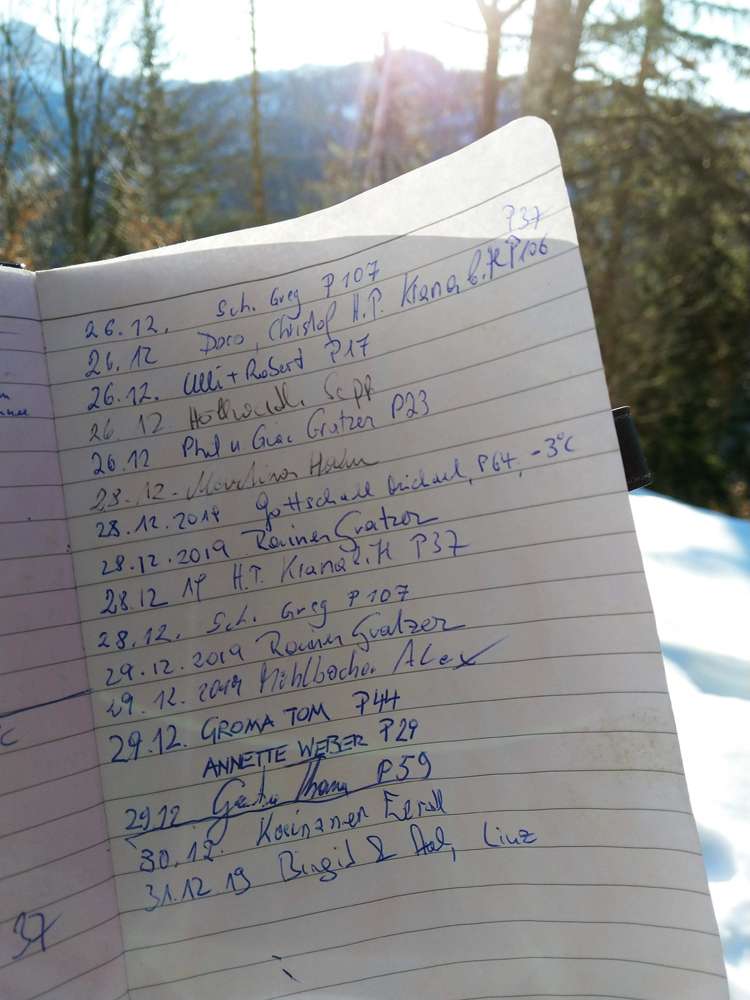 P37
26.12. Sch. Greg P107
26.12 Doro, Christof H.P. P106
26.12. Ulli + Robert P17
26 12 Sepp
26.12 Phil u Gratzer P23
28.12. Martina Hahn
28.12.2019 Gottschall Michael, P64, -3°C
28.12.2019 Rainer Gratzer
28.12 19 H.P. P37
28.12. Sch. Greg P107
29.12.2019 Rainer Gratzer
29.12.2019 Mühlbacher Alex
29.12. GROMA TOM P44
ANNETTE WEBER P29
29.12 P59
30.12.
31.12 19 Birgit & Linz
37